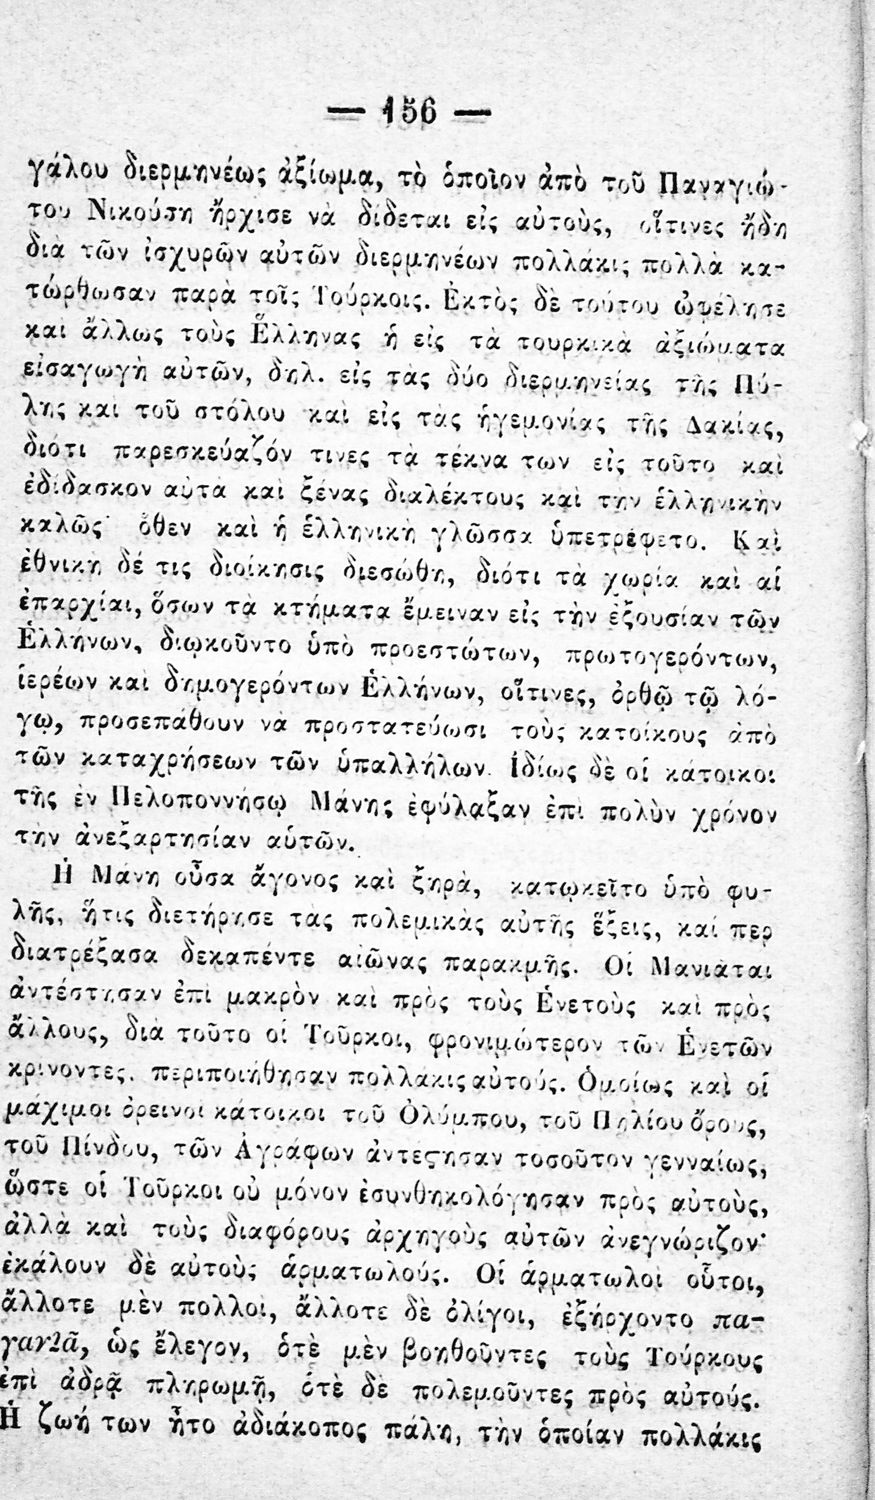 — 156 —
γάλου διερμηνέως ἀξίωμα, τὸ ὁποῖον ἀπὸ τοῦ Παναγιώ-
του Νικούση ἤρχισε νὰ δίδεται εἰς αὐτοὺς, οἵτινες ἤδη
διὰ τῶν ἰσχυρῶν αὐτῶν διερμηνέων πολλάκις πολλὰ κα-
τώρθωσαν παρὰ τοῖς Τούρκοις. Ἐκτὸς δὲ τούτου ὠφέλησε
καὶ ἄλλως τοὺς Ἕλληνας ἡ εἰς τὰ τουρκικὰ ἀξιώματα
εἰσαγωγὴ αὐτῶν, δηλ. εἰς τὰς δύο διερμηνείας τῆς Πύ-
λης καὶ τοῦ στόλου καὶ εἰς τὰς ἡγεμονίας τῆς Δακίας,
διότι παρεσκεύαζόν τινες τὰ τέκνα των εἰς τοῦτο καὶ
ἐδίδασκον αὐτὰ καὶ ξένας διαλέκτους καὶ την ἑλληνικὴν
καλῶς· ὅθεν καὶ ἡ ἑλληνικὴ γλῶσσα ὑπετρέφετο. Καὶ
ἐθνικὴ δέ τις διοίκησις διεσώθη, διότι τὰ χωρία καὶ αἱ
ἐπαρχίαι, ὅσων τὰ κτήματα ἔμειναν εἰς τὴν ἐξουσίαν τῶν
Ἑλλήνων, διῳκοῦντο ὑπὸ προεστώτων, πρωτογερόντων,
ἱερέων καὶ δημογερόντων Ἑλλήνων, οἵτινες, ὀρθῷ τῷ λό-
γῳ, προσεπάθουν νὰ προστατεύωσι τοὺς κατοίκους ἀπὸ
τῶν καταχρήσεων τῶν ὑπαλλήλων. Ἰδίως δὲ οἱ κάτοικοι
τῆς ἐν Πελοποννήσῳ Μάνης ἐφύλαξαν ἐπὶ πολὺν χρόνον
τὴν ἀνεξαρτησίαν αὑτῶν.
Ἡ Μάνη οὖσα ἄγονος καὶ ξηρὰ, κατῳκεῖτο ὑπὸ φυ-
λῆς, ἥτις διετήρησε τὰς πολεμικὰς αὐτῆς ἕξεις, καί περ
διατρέξασα δεκαπέντε αἰῶνας παρακμῆς. Οἱ Μανιάται
ἀντέστησαν ἐπὶ μακρὸν καὶ πρὸς τοὺς Ἑνετοὺς καὶ πρὸς
ἄλλους, διὰ τοῦτο οἱ Τοῦρκοι, φρονιμώτερον τῶν Ἑνετῶν
κρίνοντες, περιποιήθησαν πολλάκις αὐτούς. Ὁμοίως καὶ οἱ
μάχιμοι ὀρεινοὶ κάτοικοι τοῦ Ὀλύμπου, τοῦ Πηλίου ὄρους,
τοῦ Πίνδου, τῶν Ἀγράφων ἀντέςησαν τοσοῦτον γενναίως,
ὥστε οἱ Τοῦρκοι οὐ μόνον ἐσυνθηκολόγησαν πρὸς αὐτοὺς,
ἀλλὰ καὶ τοὺς διαφόρους ἀρχηγοὺς αὐτῶν ἀνεγνώριζον·
ἐκάλουν δὲ αὐτοὺς ἁρματωλούς. Οἱ ἁρματωλοὶ οὗτοι,
ἄλλοτε μὲν πολλοὶ, ἄλλοτε δὲ ὀλίγοι, ἐξήρχοντο πα-
γανιᾶ, ὡς ἔλεγον, ὁτὲ μὲν βοηθοῦντες τοὺς Τούρκους
ἐπὶ ἁδρᾷ πληρωμῇ, ὁτὲ δὲ πολεμοῦντες πρὸς αὐτούς.
Ἡ ζωή των ἦτο ἀδιάκοπος πάλη, τὴν ὁποίαν πολλάκις